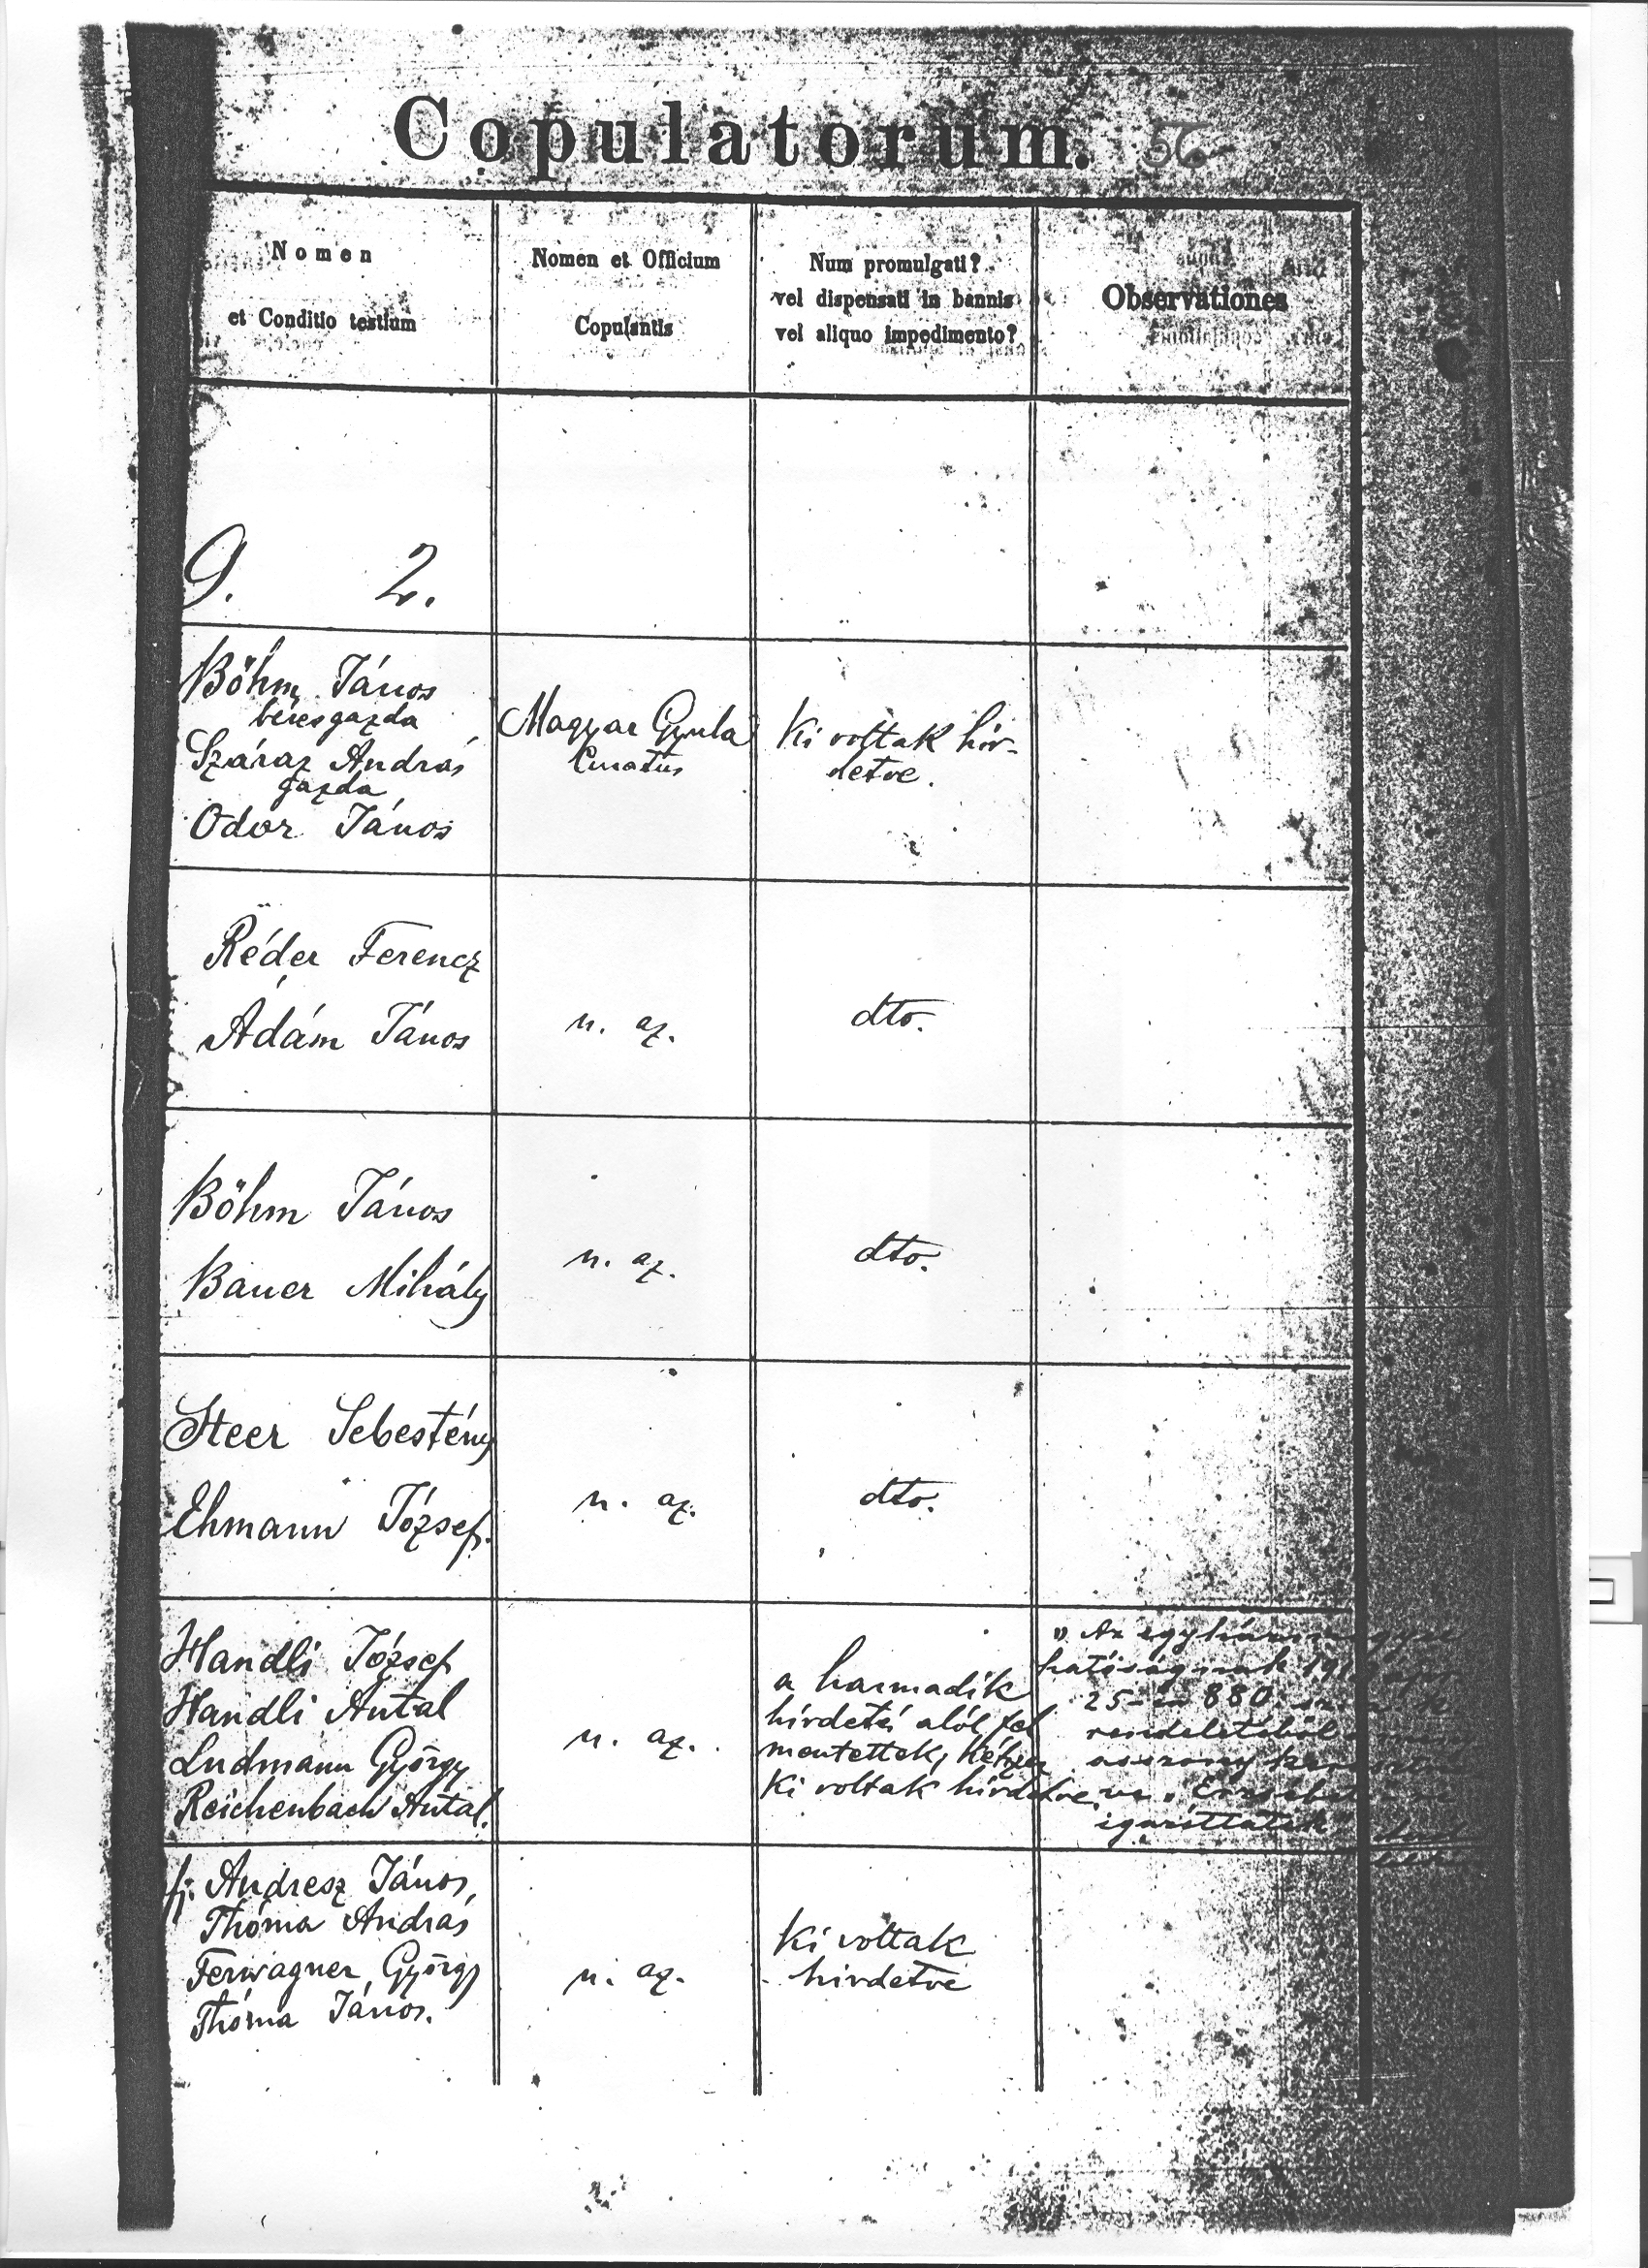 Copulatorum. 56.
Nomen
et Conditio testium
Nomen et Officium
Copulantis
Num promulgati?
vel dispensati in bannis
vel aliquo impedimento?
Observationes
9. 2.
Böhm János
béresgazda
Száraz András
gazda
Odor János
Magyar Gyula
Curatus
Ki voltak hir-
detve.
Réder Ferencz
Ádám János
u. az.
dto.
Böhm János
Bauer Mihály
u. az.
dto.
Steer Sebestény
Ehmann József.
u. az.
dto.
Handli József
Handli Antal
Ludmann György
Reichenbach Antal.
u. az.
a harmadik
hirdetés alól fel
mentettek, kétszer
Ki voltak hirdetve.
Az
hatóságának
25-én 880.
rendeletéből
asszony
igazíttatik
ifj. Andresz János,
Thóma András
Ferwagner György
Thóma János.
u. az.
Ki voltak
hirdetve